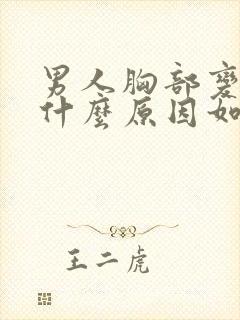 男人胸部變
什麼原因如
王二虎